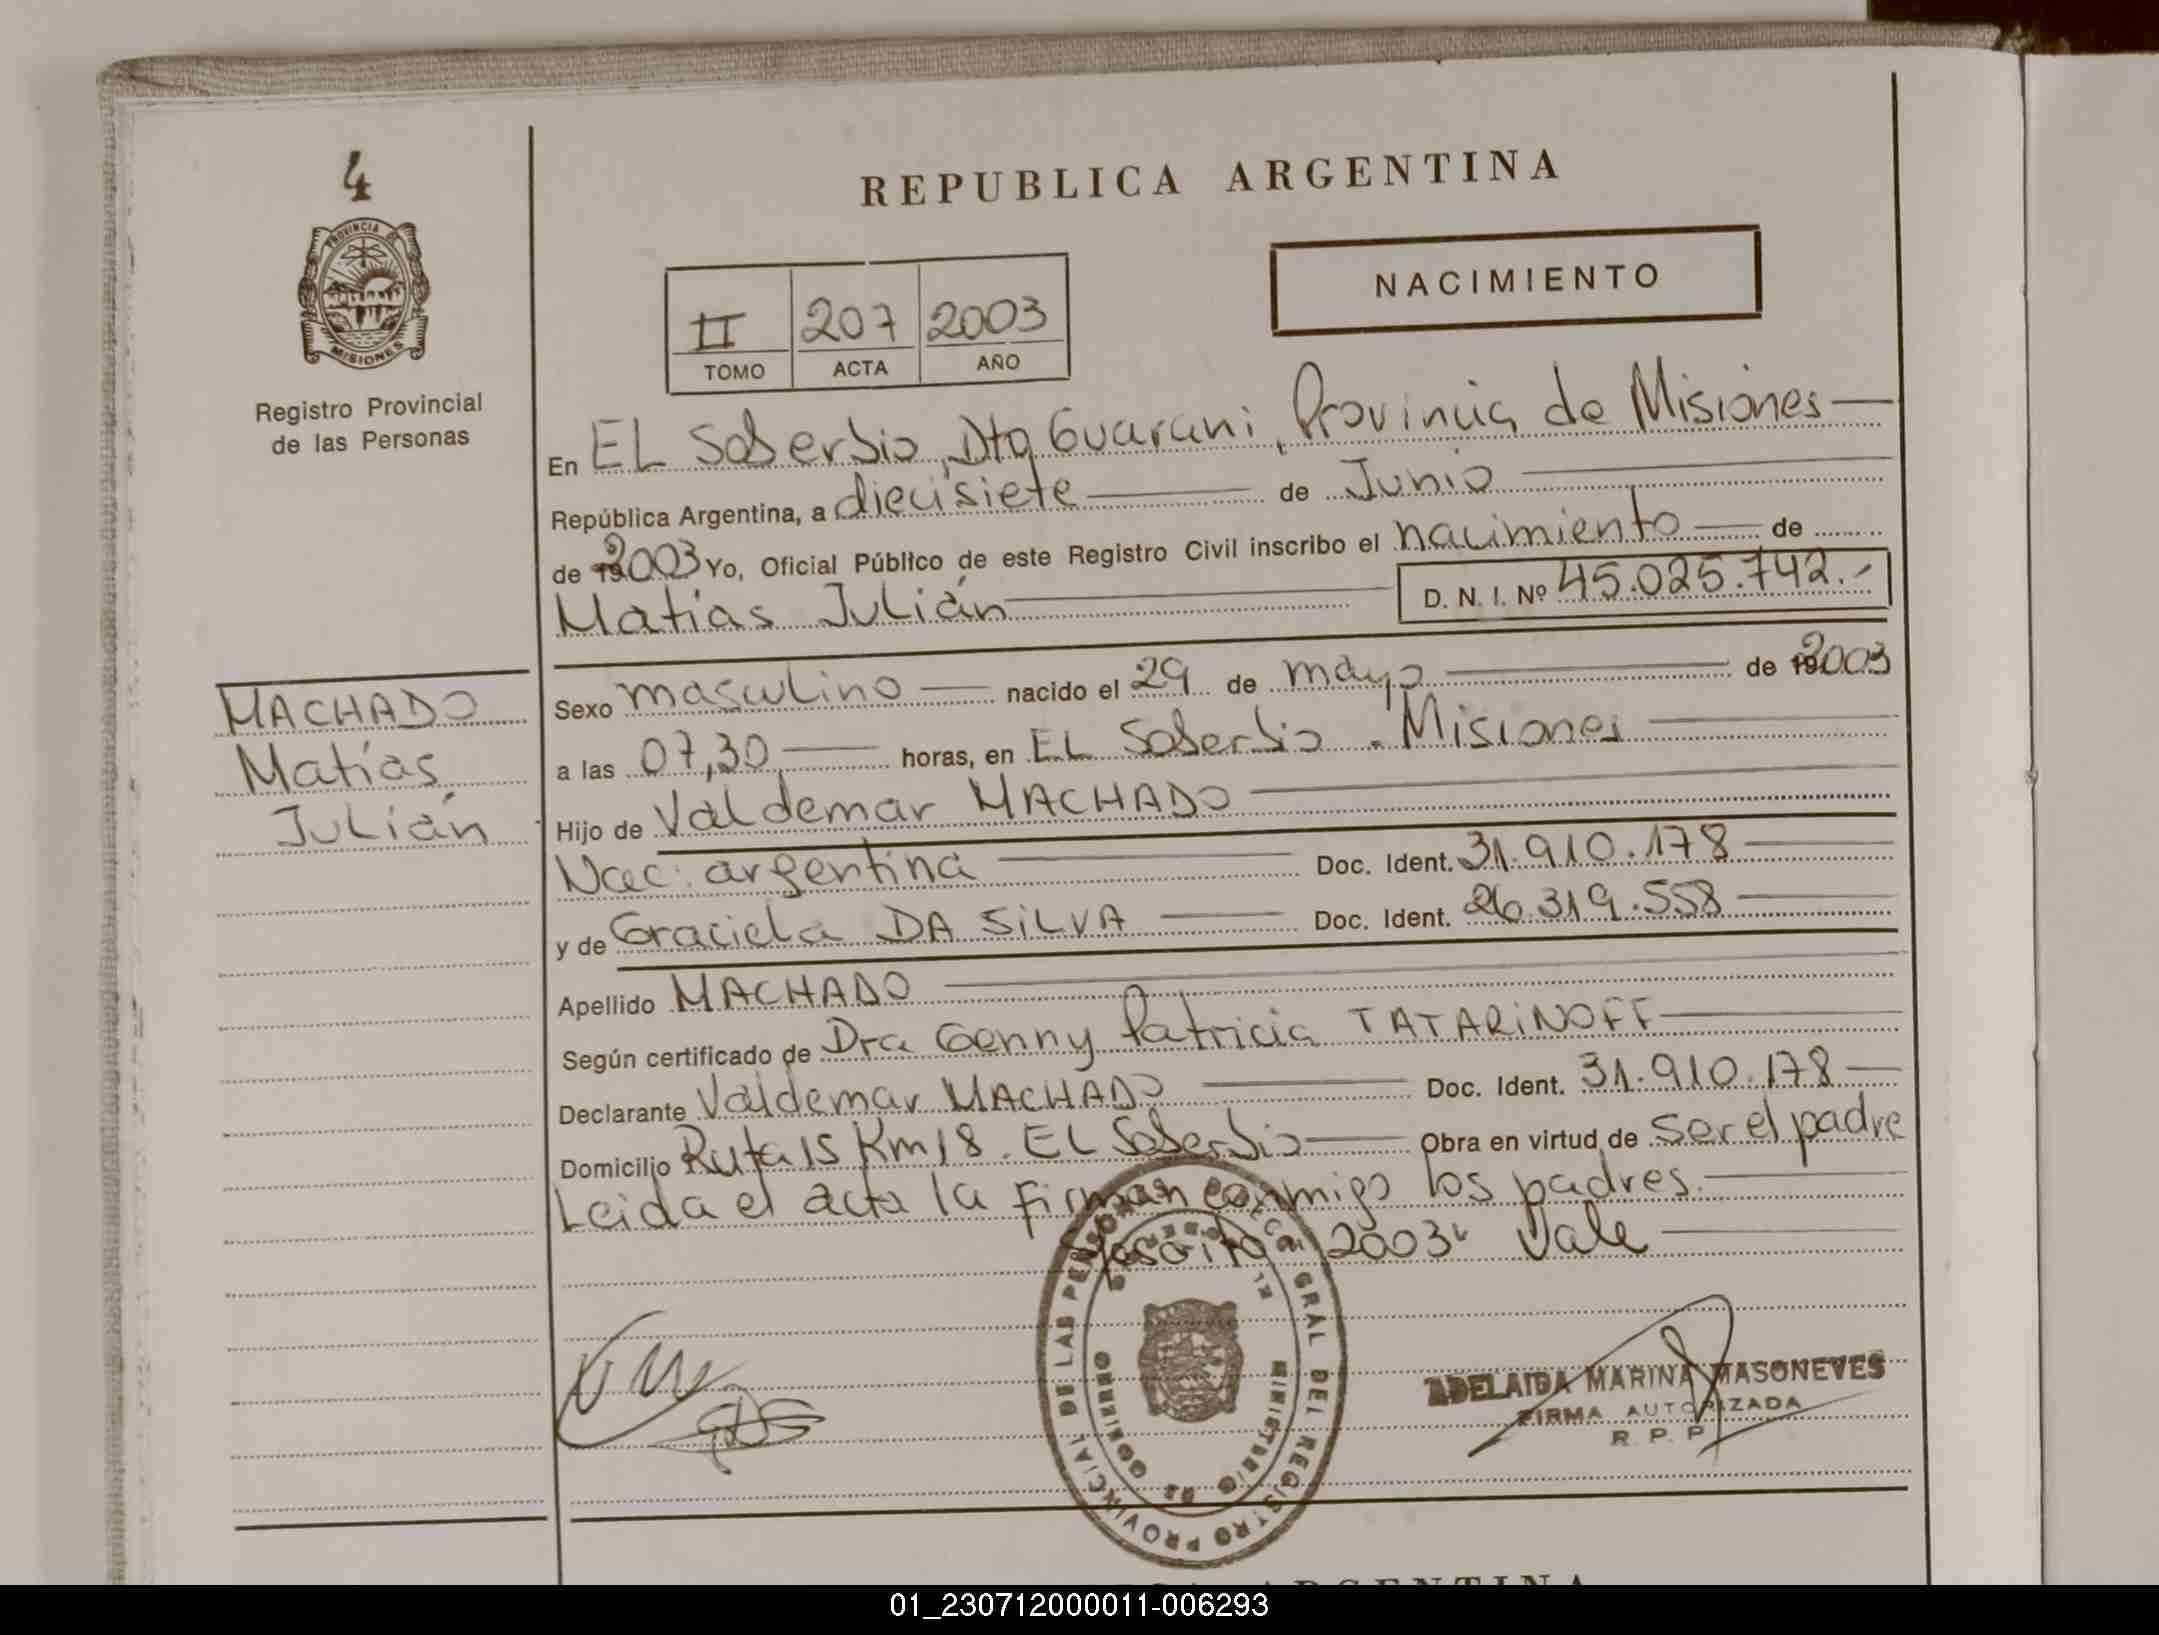 4
PROVINCIA DE
MISIONES
Registro Provincial
de las Personas
REPUBLICA ARGENTINA
NACIMIENTO
II 207 2003
TOMO ACTA AÑO
En EL Soberbio, Dto Guarani, Provincia de Misiones
República Argentina, a diecisiete de Junio
de 2003 Yo, Oficial Público de este Registro Civil inscribo el nacimiento de
Matías Julián D. N. I. Nº 45.025.742.-
MACHADO
Matías
Julián
Sexo masculino nacido el 29 de mayo de 2003
a las 07,30 horas, en EL Soberbio . Misiones
Hijo de Valdemar MACHADO
Nac: argentina Doc. Ident. 31.910.178
y de Graciela DA SILVA Doc. Ident. 26.319.558
Apellido MACHADO
Según certificado de Dra Genny Patricia TATARiNOFF
Declarante Valdemar MACHADO Doc. Ident. 31.910.178
Domicilio Ruta 15 Km 18. EL Soberbio Obra en virtud de ser el padre
Leida el acta la firman conmigo los padres.
2003" Vale
ADELAIDA MARINA MASONEVES
FIRMA AUTORIZADA
R. P. P.
GRAL DEL REGISTRO PROVINCIAL DE LAS PERSONAS
MINISTERIO DE GOBIERNO
ARGENTINA
01_230712000011-006293